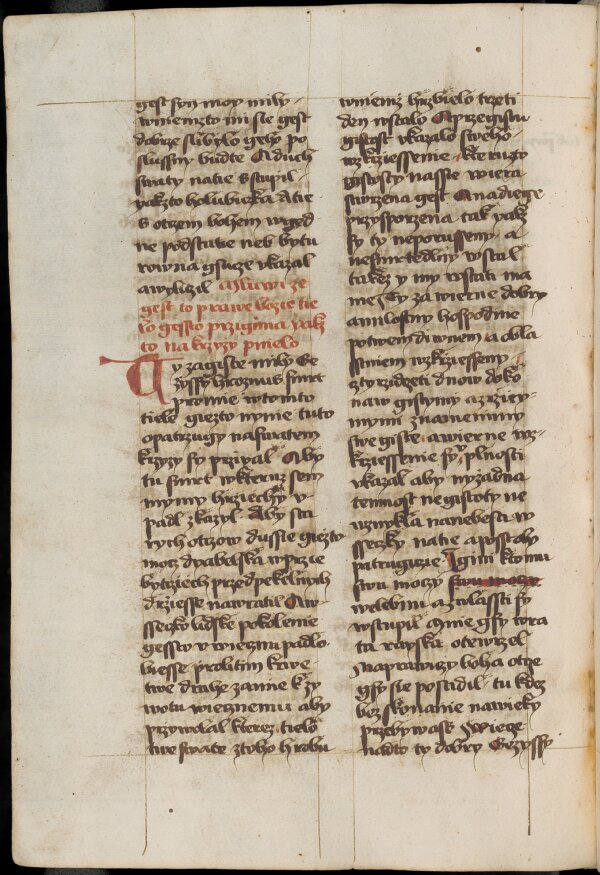 gest syn moy mily
wniemzto mi sie gest
dobrze slibylo geho po
slussny budte A duch
swaty natie sstupil
yakzto holubicka A tie
s otczem bohem wged
ne podstatie neb bytu
rowna gsucze vkazal
a wylizil Mluwi ze
gest to prawe bozie tie
lo gessto przigima yak
to na krzyzy pnielo
Ty zagiste mily Ge
zyssy hroznu smrt
pro mie w tomto
tiele giezto nynie tuto
opatrzugi na swatem
krzyzy sy przigal Aby
tu smrt w kteruz sem
mymy hrziechy v
padl zkazyl Aby sta
rych otczow dussie giezto
mocz dyabelska w przie
bytciech przedpekelnych
drziesse nawratil A w
sseczko lidske pokolenie
gessto w wieznu padlo
biesse prolitim krwe
twe drahe za mie krzy
wotu wiecznemu aby
przywolal kterez tielo
twe swate z toho hrobu
wniemz hrzbielo trzeti
den wstalo A przegistu
gistost vkazalo sweho
wzkrziessenie kteruzto
gistosty nassie wiera
stwrzena gest A nadiege
przysporzena tak yakz
sy ty neporusseny a
nesmrtedlny wstal
takez y my wstati ma
me Ty za wierne dobry
a milostny hospodine
po twem diwnem a obla
sstniem wzkrziesseny
czty rzidczeti dnow doko
naw gistymy a zrziey
mymi znamenimy
swe giste a wierne wz
krziessenie sy plnosti
vkazal aby nyzadna
temnost negistoty ne
wznykla na nebesti w
sseczky na tie aposstoly
patrugicze Igmi ktomu
swu moczy
welebnu a zwlassti sy
wstupil A mie gsy wra
ta rayska otewrzel
Naprawiczy boha otcze
gsy sie posadil tu kdez
bez skonanie na wieky
przebywass Swiege
nadto ty dobry Gezyssy